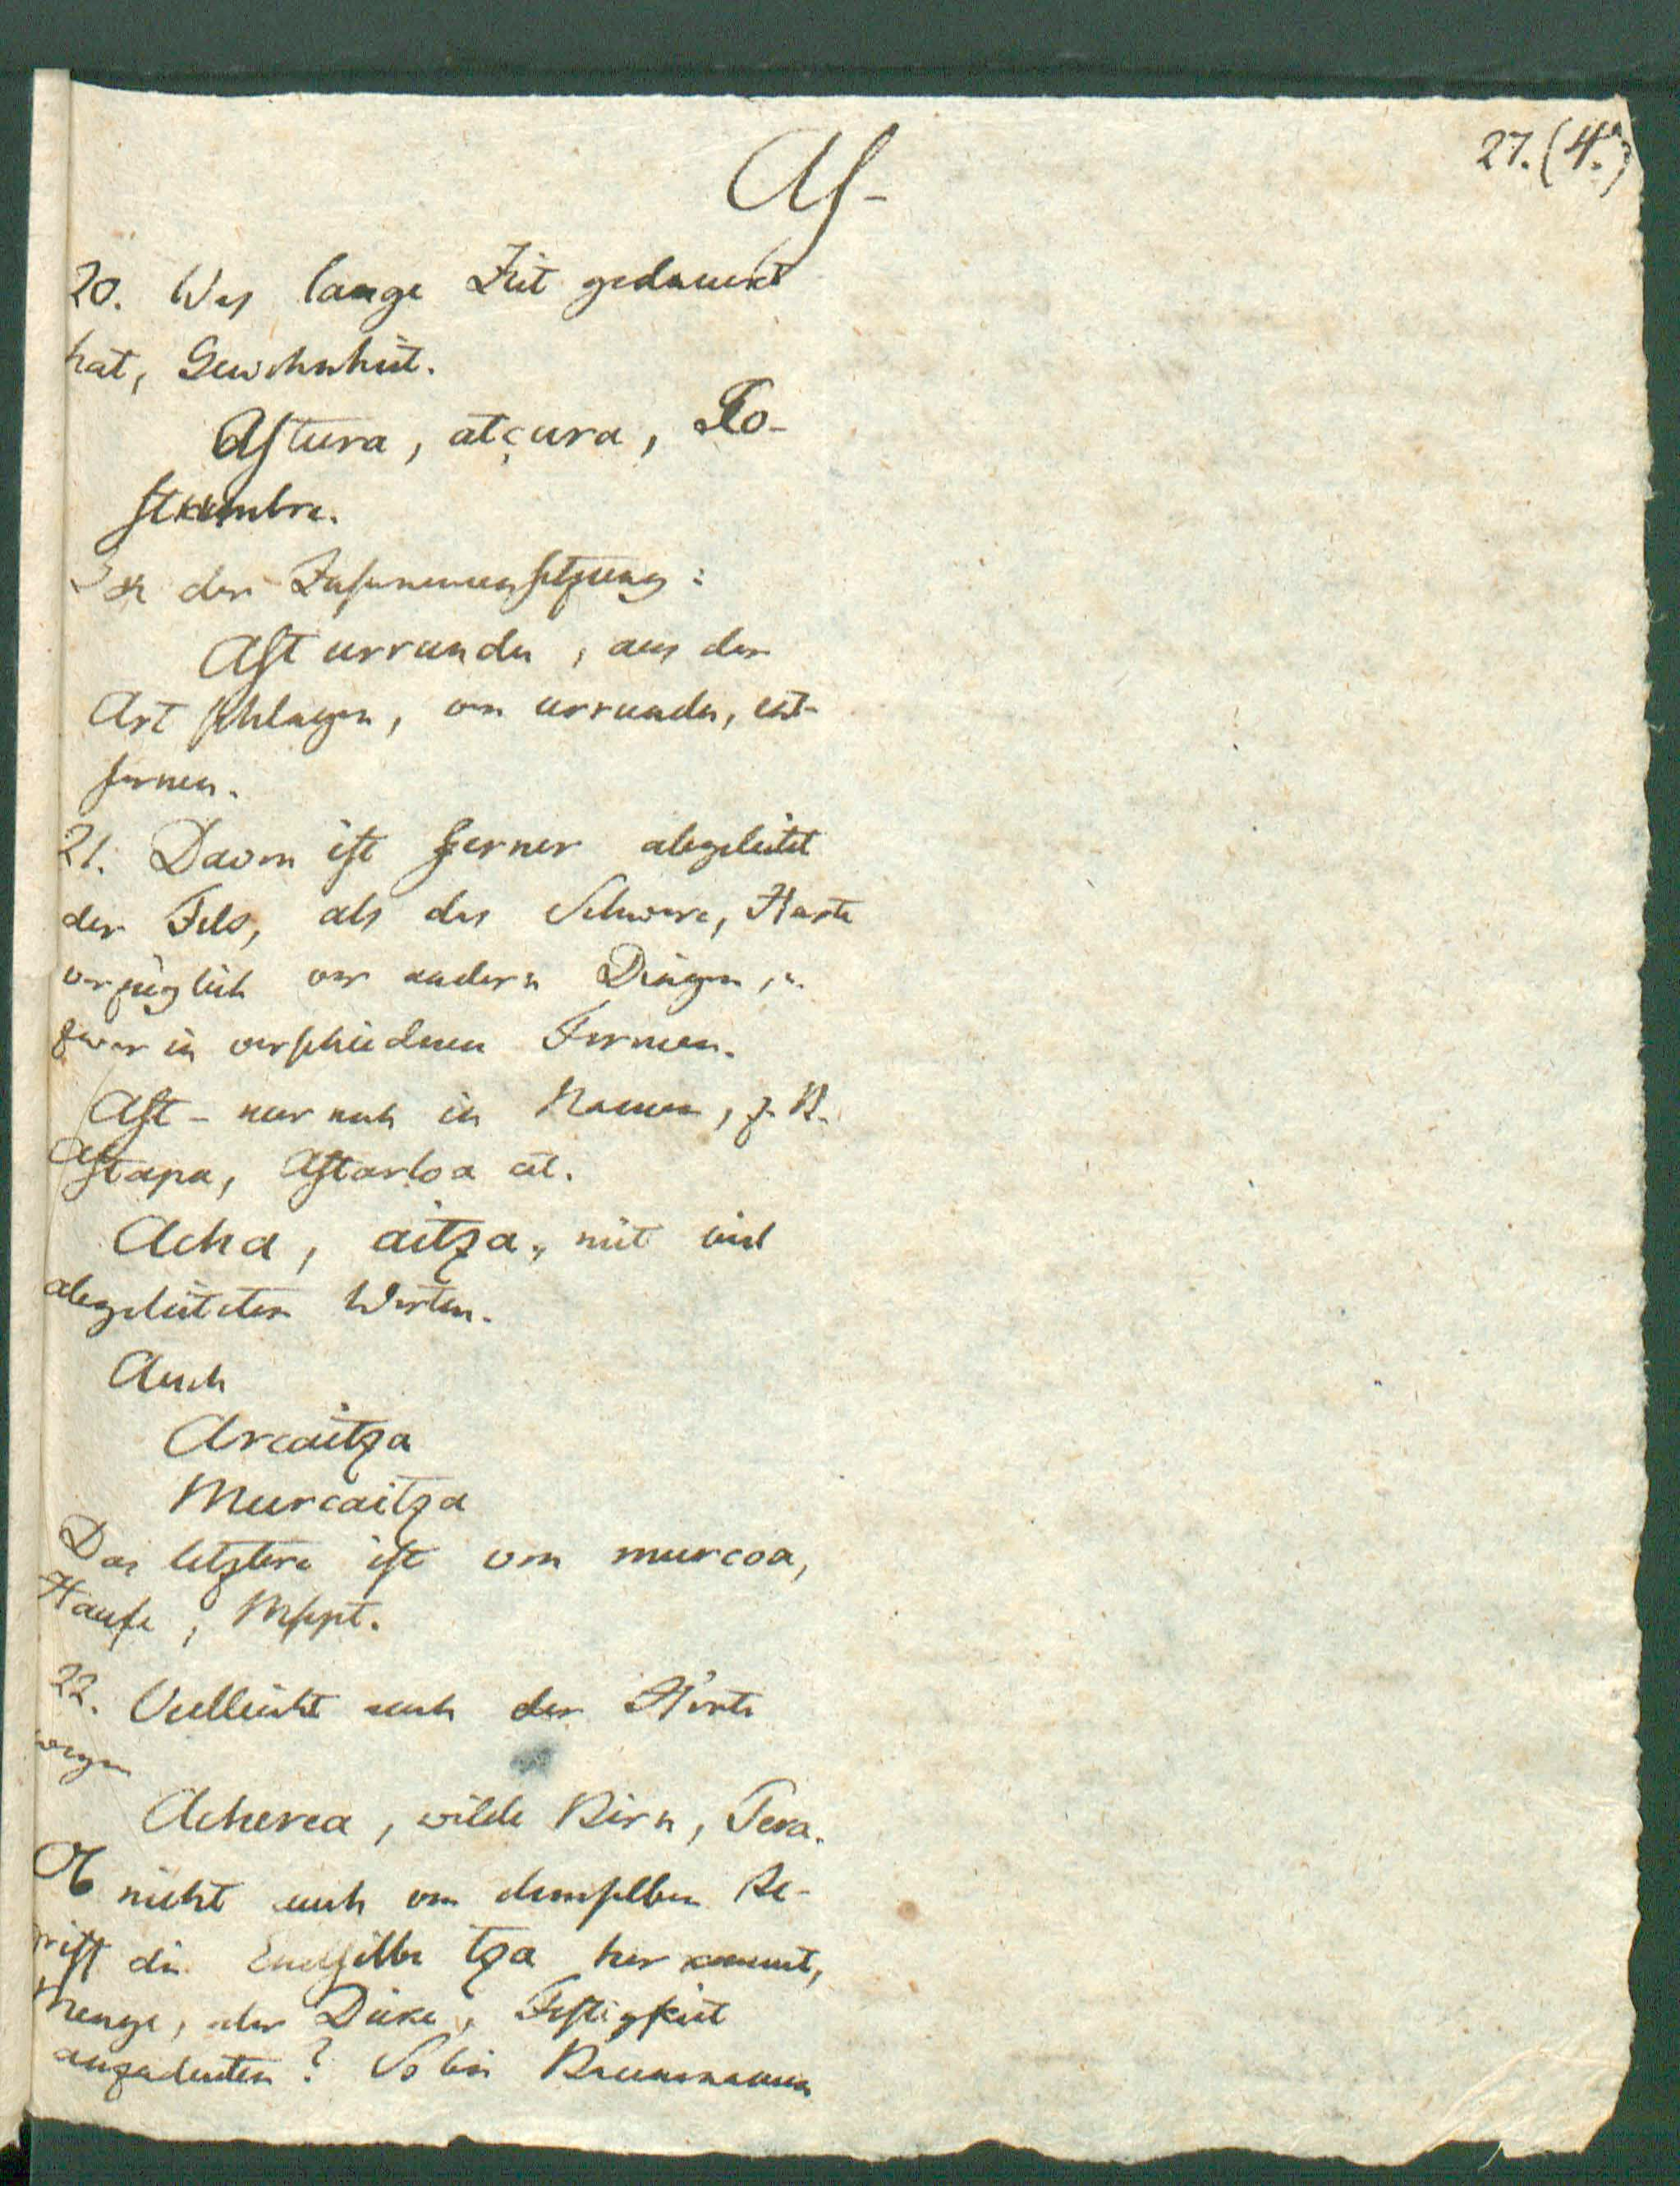 27. (4.)
As-
20. Was lange Zeit gedauert
hat, Gewohnheit.
Astura, atçura, Co-
stumbre.
In der Zusammensetzung:
Ast urrundu, aus der
Art schlagen, von urrundu, ent-
fernen.
21. Davon ist ferner abgeleitet
der Fels, als das Schwere, Harte
vorzüglich vor andern Dingen, u.
zwar in verschiednen Formen.
Ast- nur noch in Namen, z. B.
Astapa, Astarloa cet.
Acha, aitza, mit viel
abgeleiteten Worten.
Auch
Arcaitza
Murcaitza
Das letztere ist von murcoa,
Haufe, Mspt.
22. Vielleicht auch der Härte
wegen
Acherea, wilde Birn,
Ob nicht auch von demselben Be-
griff die Endsilbe tza her kommt,
Menge, oder Dicke, Festigkeit
anzudeuten? So bei Baumnamen